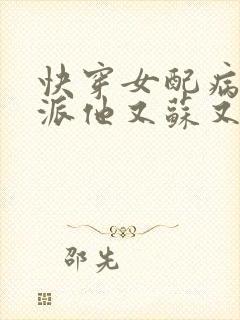 快穿女配病
派他又蘇又
邵先